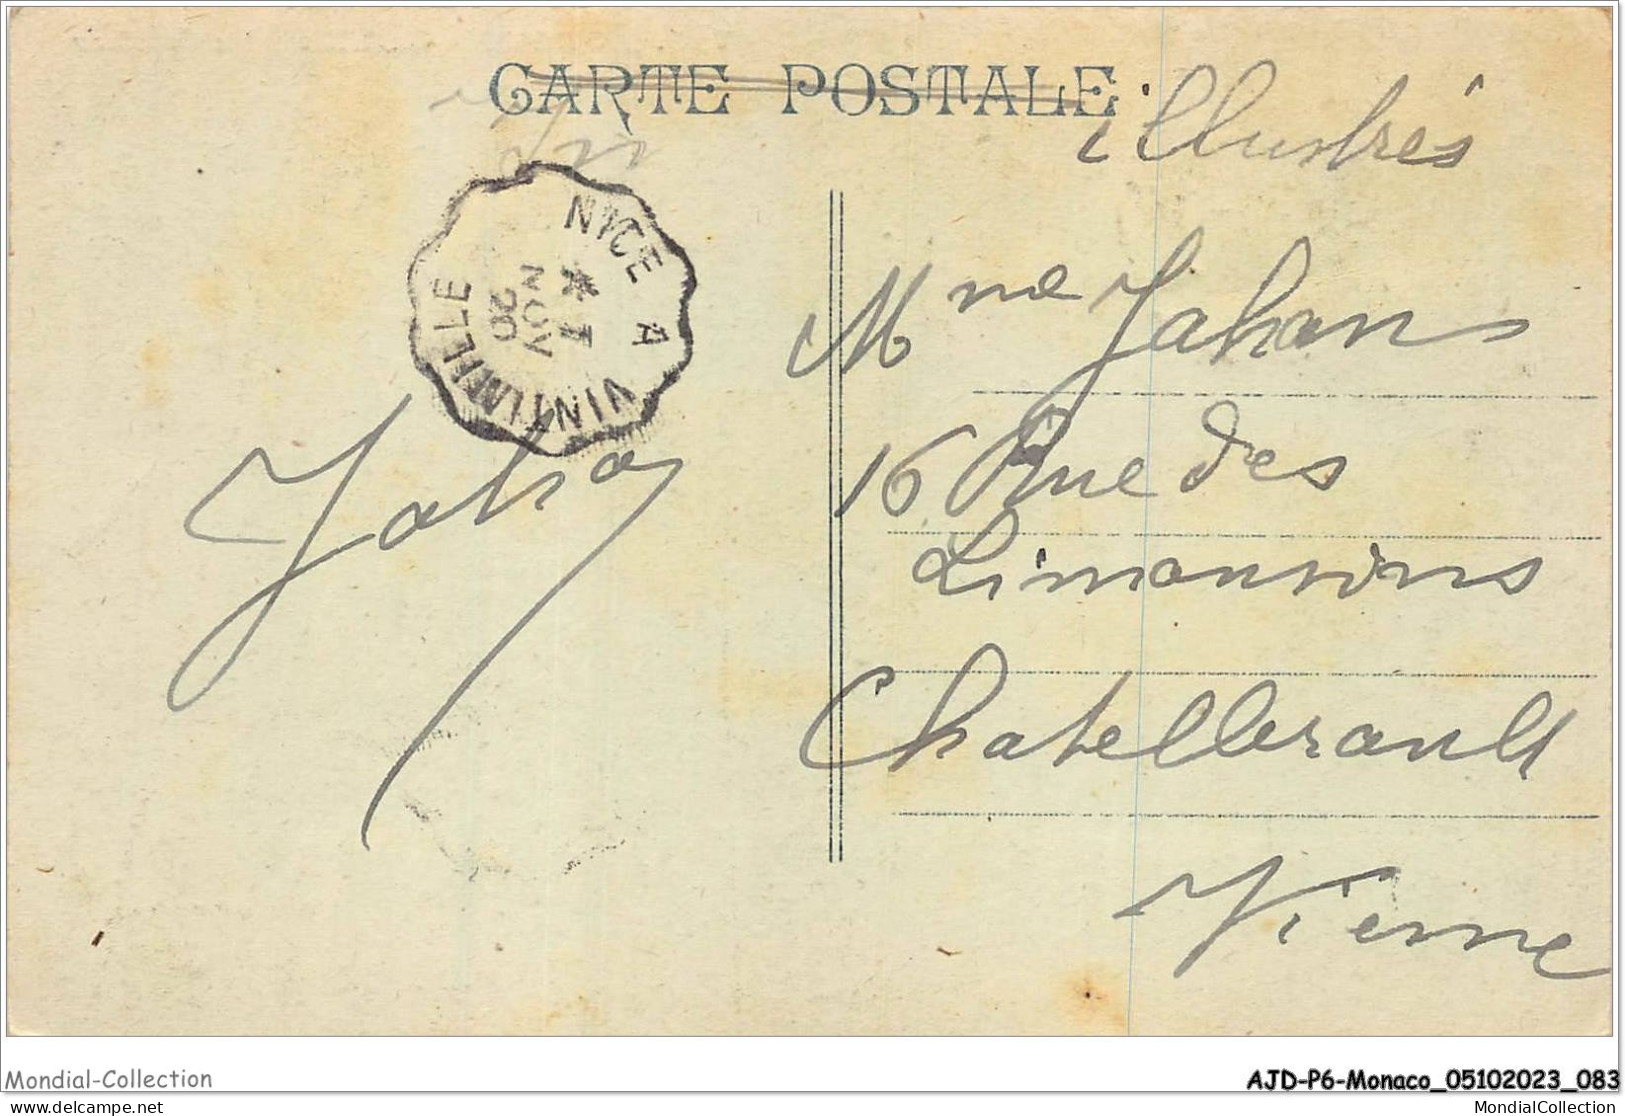 CARTE POSTALE
illustrés
NICE A VINTIMILLE
* 1
NOV
20
Mme Jahan
16 Rue des
Limousins
Chatellerault
Vienne
Jahan
Mondial-Collection
AJD-P6-Monaco_05102023_083
delcampe.net
MondialCollection